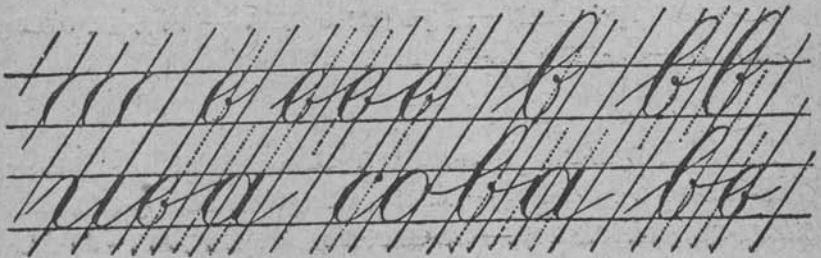 в ввв в вв
ива сова вв